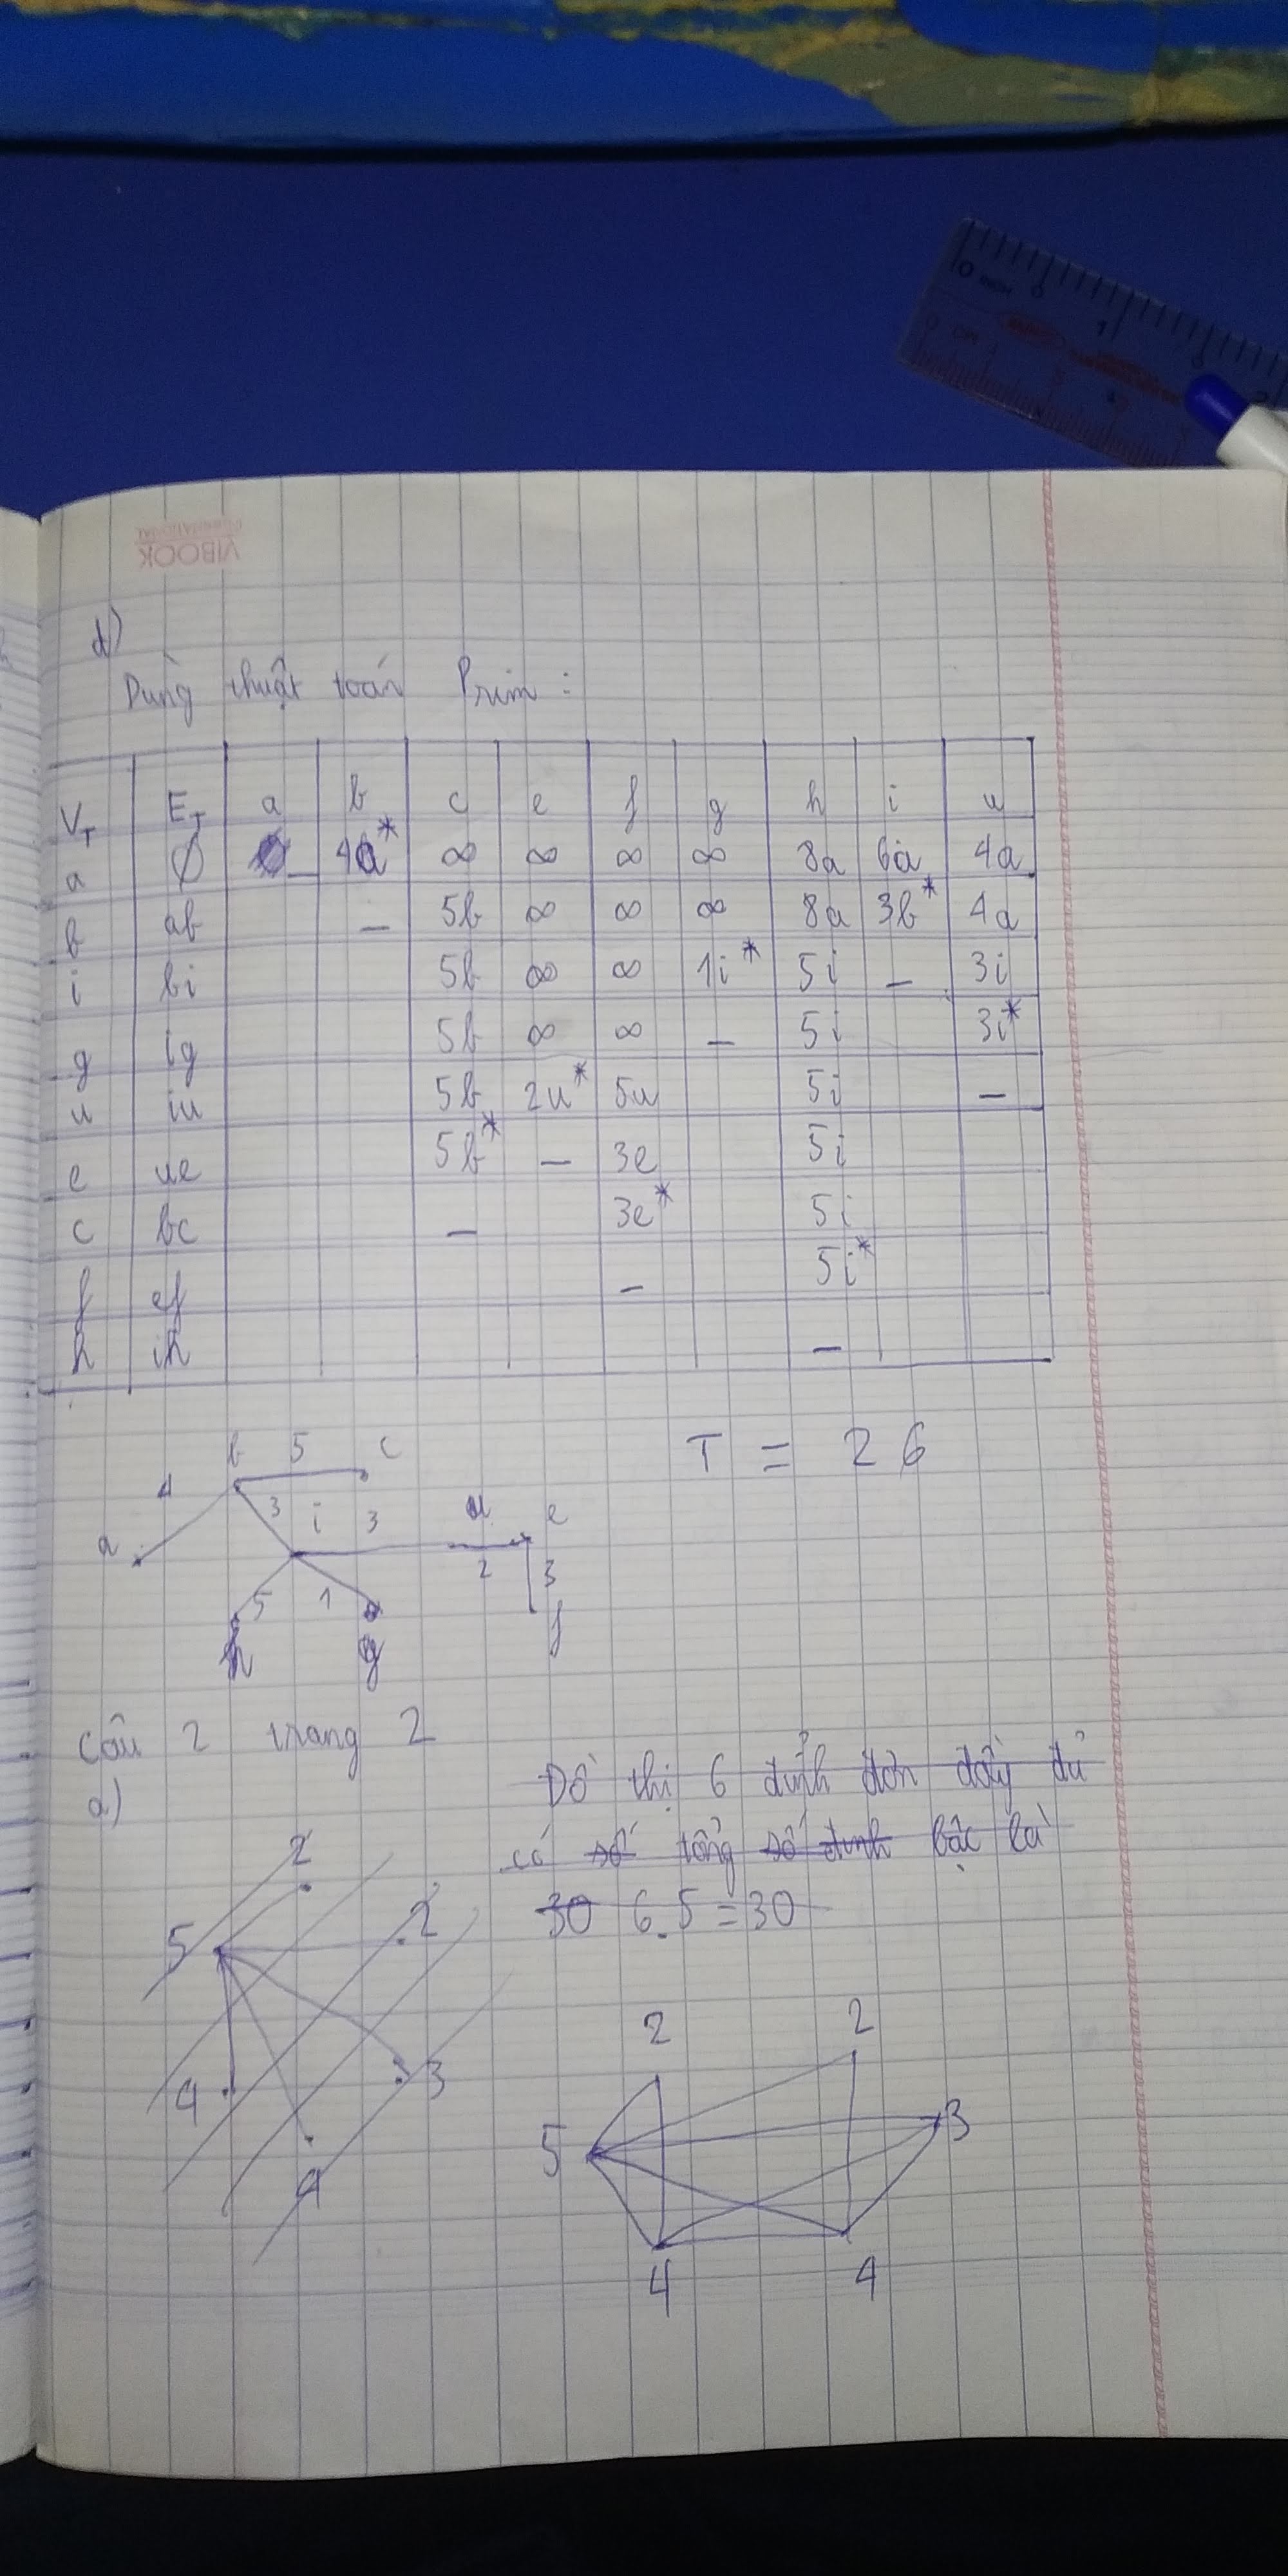 VIBOOK
INTERNATIONAL
0 mm
0 cm
d)
Dùng thuật toán Prim :
V_T E_T a b c e f g h i u
a ∅ _ 4a* ∞ ∞ ∞ ∞ 8a 6a 4a
b ab – 5b ∞ ∞ ∞ 8a 3b* 4a
i bi 5b ∞ ∞ 1i* 5i – 3i
g ig 5b ∞ ∞ – 5i 3i*
u iu 5b 2u* 5u 5i –
e ue 5b* – 3e 5i
c bc – 3e* 5i
f ef – 5i*
h ih –
T = 26
b 5 c
4 3 i 3 u e
a 2 3
5 1 f
h g
Câu 2 trang 2
a)
Đồ thị 6 đỉnh đơn đầy đủ
có số tổng số đỉnh bậc là
30 6.5 = 30
2
5 2
4 3
4
2 2
5 3
4 4